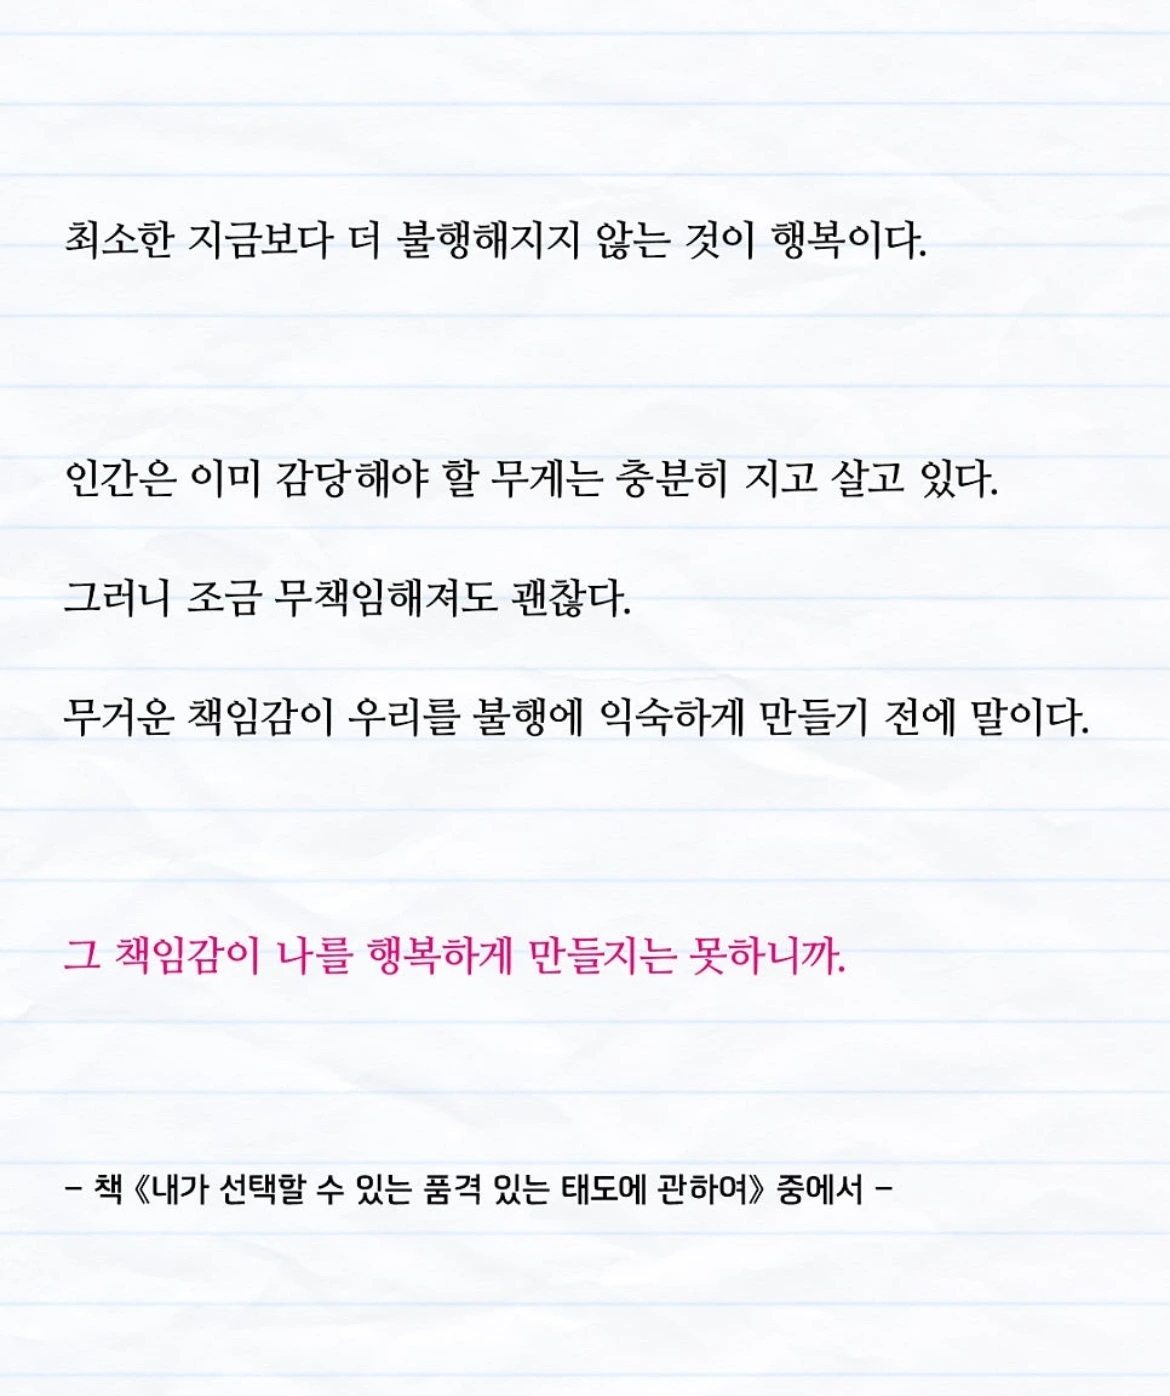 최소한 지금보다 더 불행해지지 않는 것이 행복이다.
인간은 이미 감당해야 할 무게는 충분히 지고 살고 있다.
그러니 조금 무책임해져도 괜찮다.
무거운 책임감이 우리를 불행에 익숙하게 만들기 전에 말이다.
그 책임감이 나를 행복하게 만들지는 못하니까.
– 책 《내가 선택할 수 있는 품격 있는 태도에 관하여》 중에서 –